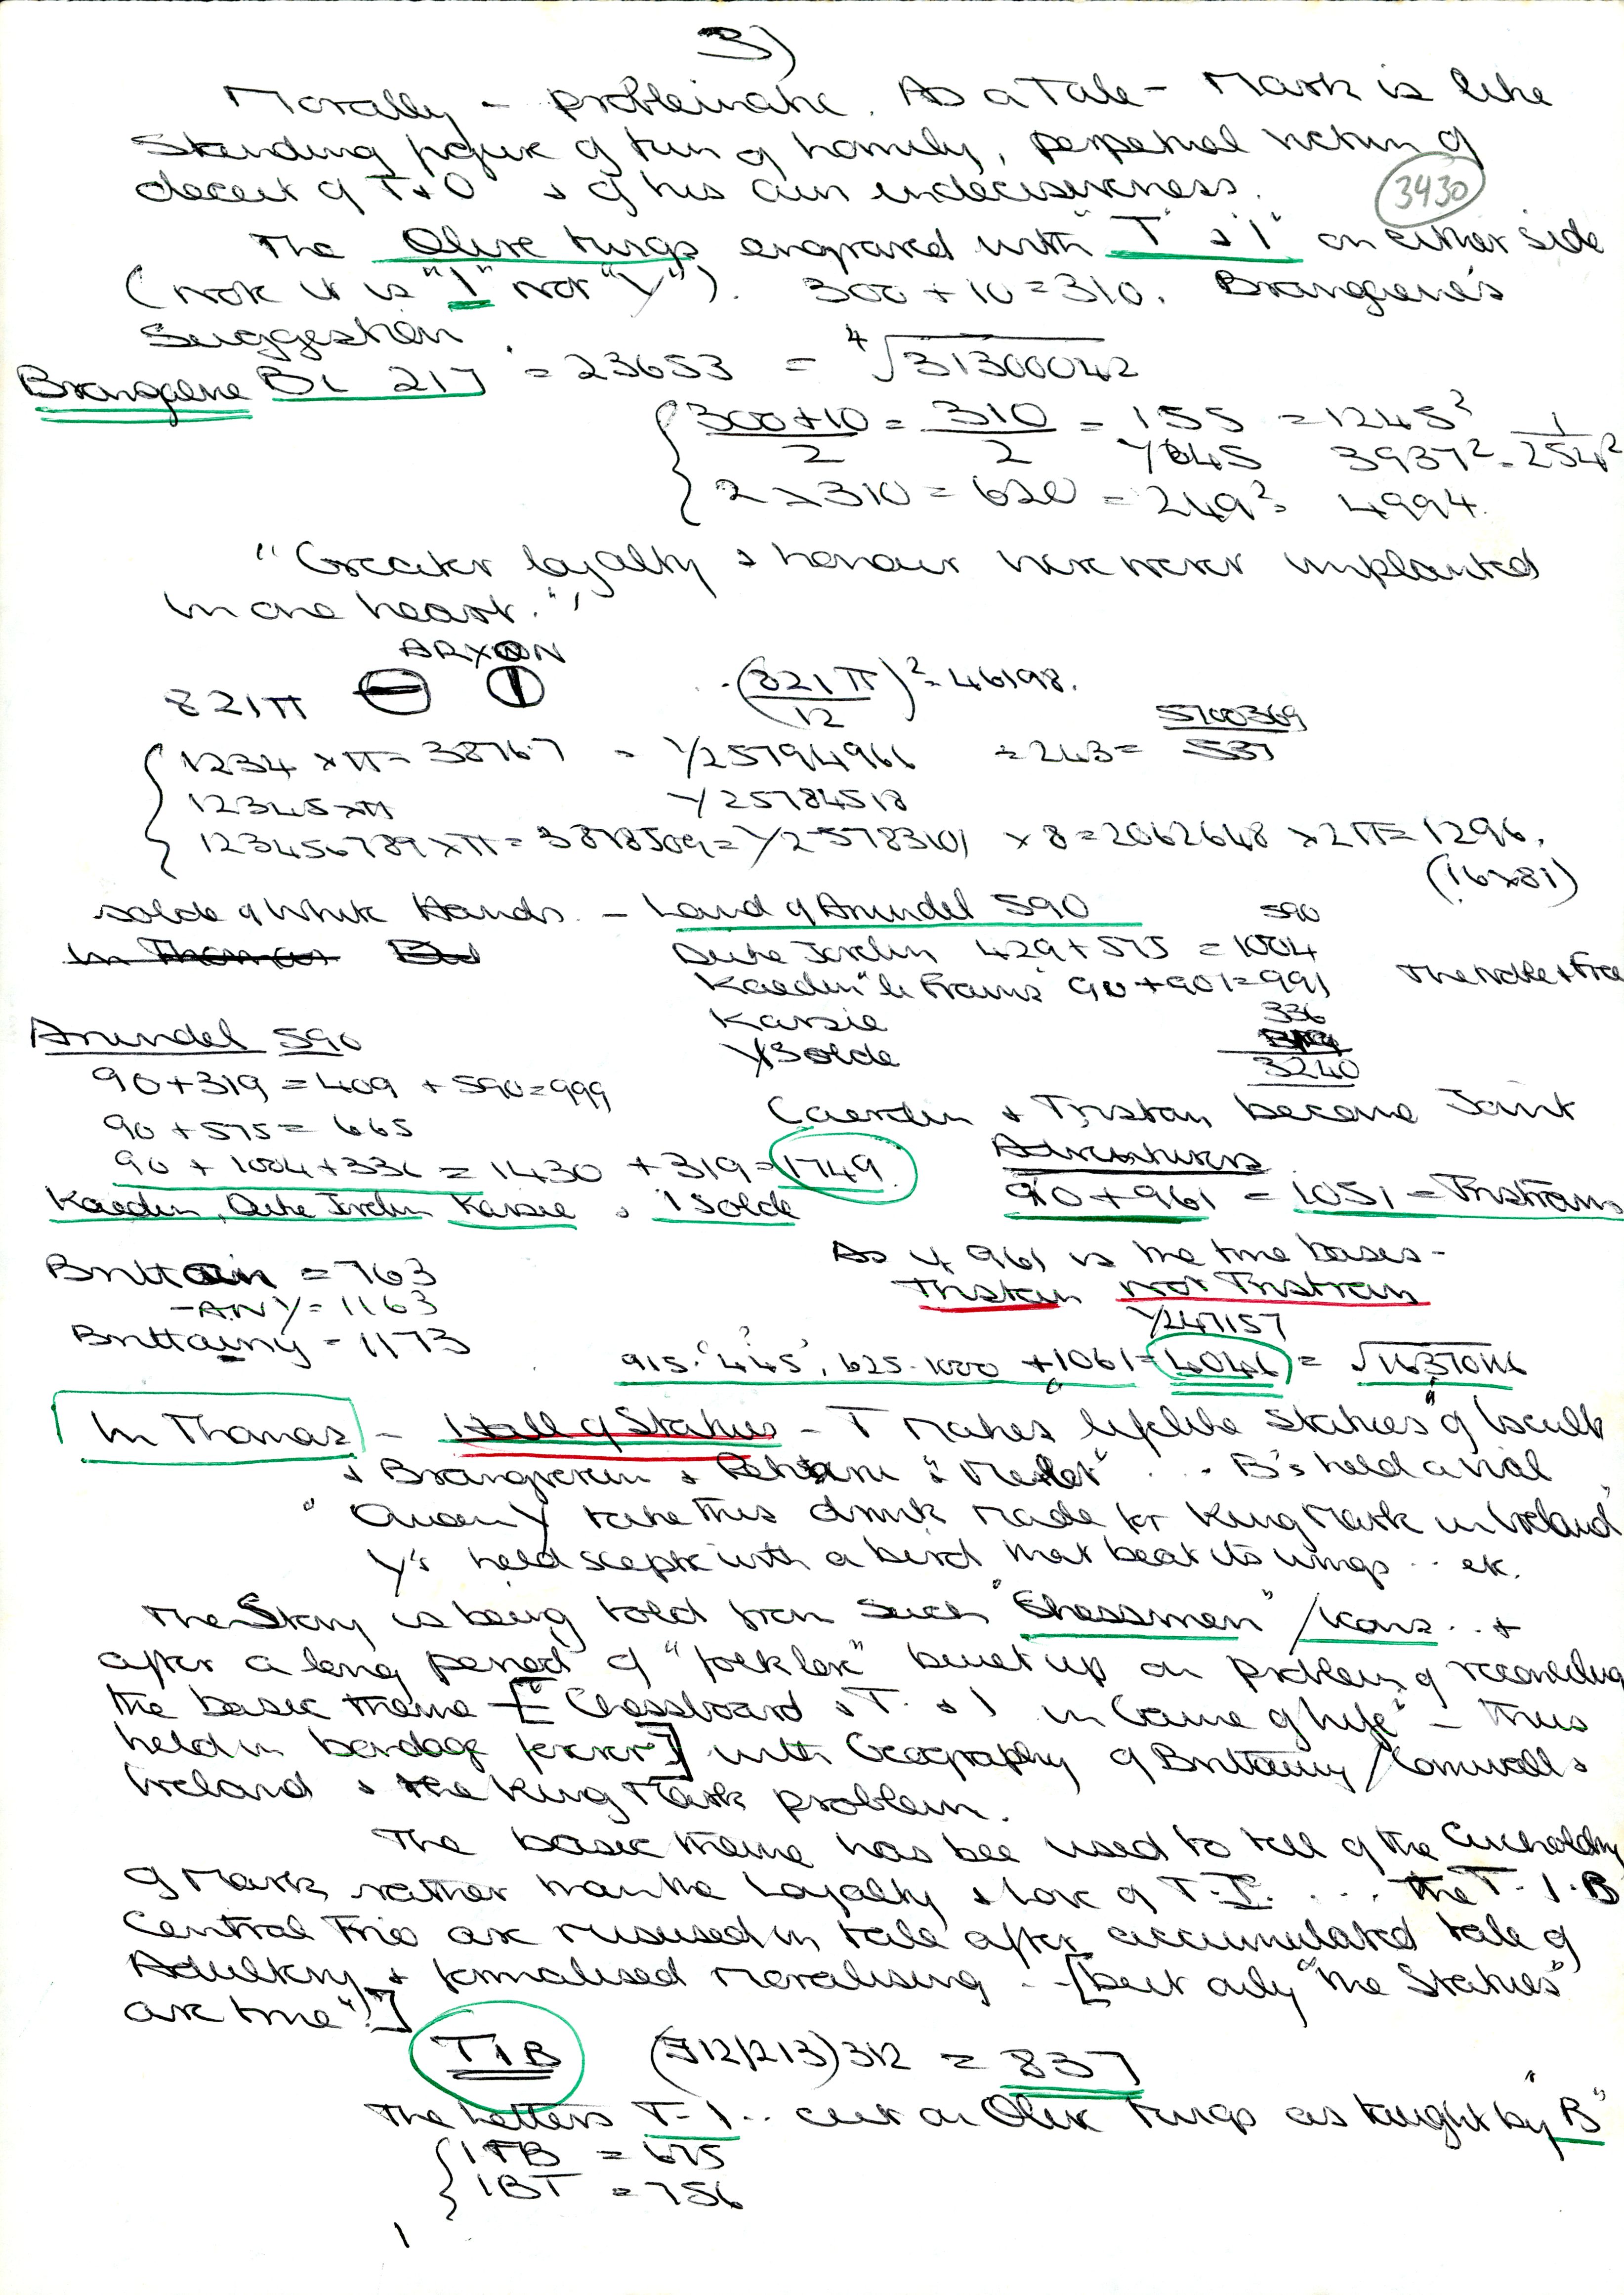 3)
Morally - problematic. As a Tale - Mark is like
Standing figure of fun of homily, perpetual victim of
deceit of T & O & of his own indecisiveness.
3430
The Olive twigs engraved with "T" & "I" on either side
(note it is "I" not "Y"). 300 + 10 = 310. Brangiene's
Suggestion.
Brangene BL 217 = 23653 = ⁴√31300042
300+10/2 = 310/2 = 155 = 1245² 1/254²
Y645 3937²
2 × 310 = 620 = 249² 4994.
"Greater loyalty & honour were never implanted
in one heart."
ARXON
821π (821π/12)² = 46198.
1234 × π = 38767 = Y25794966 ÷ 243 = 5700369/537
12345 × π Y25784518
123456789 × π = 3878509 = Y25783101 × 8 = 2062648 × 2π = 1296.
(16×81)
Isolde of White Hands. - Land of Arundel 590 590
In Thomas Duke Jovelin 429 + 575 = 1004
Kaedin "le Frains" 90 + 901 = 991 The Noble & Free
Karsie 336
Arundel 590 Ysolde 319
3240
90 + 319 = 409 + 590 = 999
90 + 575 = 665 Caerdin & Tristan become Joint
90 + 1004 + 336 = 1430 + 319 = 1749 Adventurers
Kaedin, Duke Jovelin Karsie, Isolde 90 + 961 = 1051 = Tristrans
Brittain = 763 As if 961 is the true bases -
-ANY = 1163 Tristan not Tristran
Brittainy = 1173 Y247157
915. "445", 625. 1000 + 1061 = 4046 = √16370116
In Thomas - Hall of Statues - T makes lifelike Statues of Iseult
& Brangverein & Petitcru & "Merlot" . . - B's held a vial
"Queen Y take this drink made for King Mark in Ireland"
Y's held sceptre with a bird that beat its wings .. etc.
The Story is being told from such "Chessmen" / Icons .. &
after a long period of "folk lore" built up on problem of reconciling
the basic theme - [Chessboard & T. & I in Game of Life" - thus
held in bondage forever] with Geography of Brittainy / Cornwall &
Ireland & the King Mark problem.
The basic theme has bee used to tell of the Cuckoldry
of Mark rather than the Loyalty & love of T.I. . . . The T. I. B
Central Trio are misused in tale after accumulated tale of
Adultery & formalised moralising - [but only "the Statues"
are true"!]
TIB (712/213)312 = 837
The Letters T-I.. cut on Olive twigs as taught by "B"
ITB = 675
IBT = 756